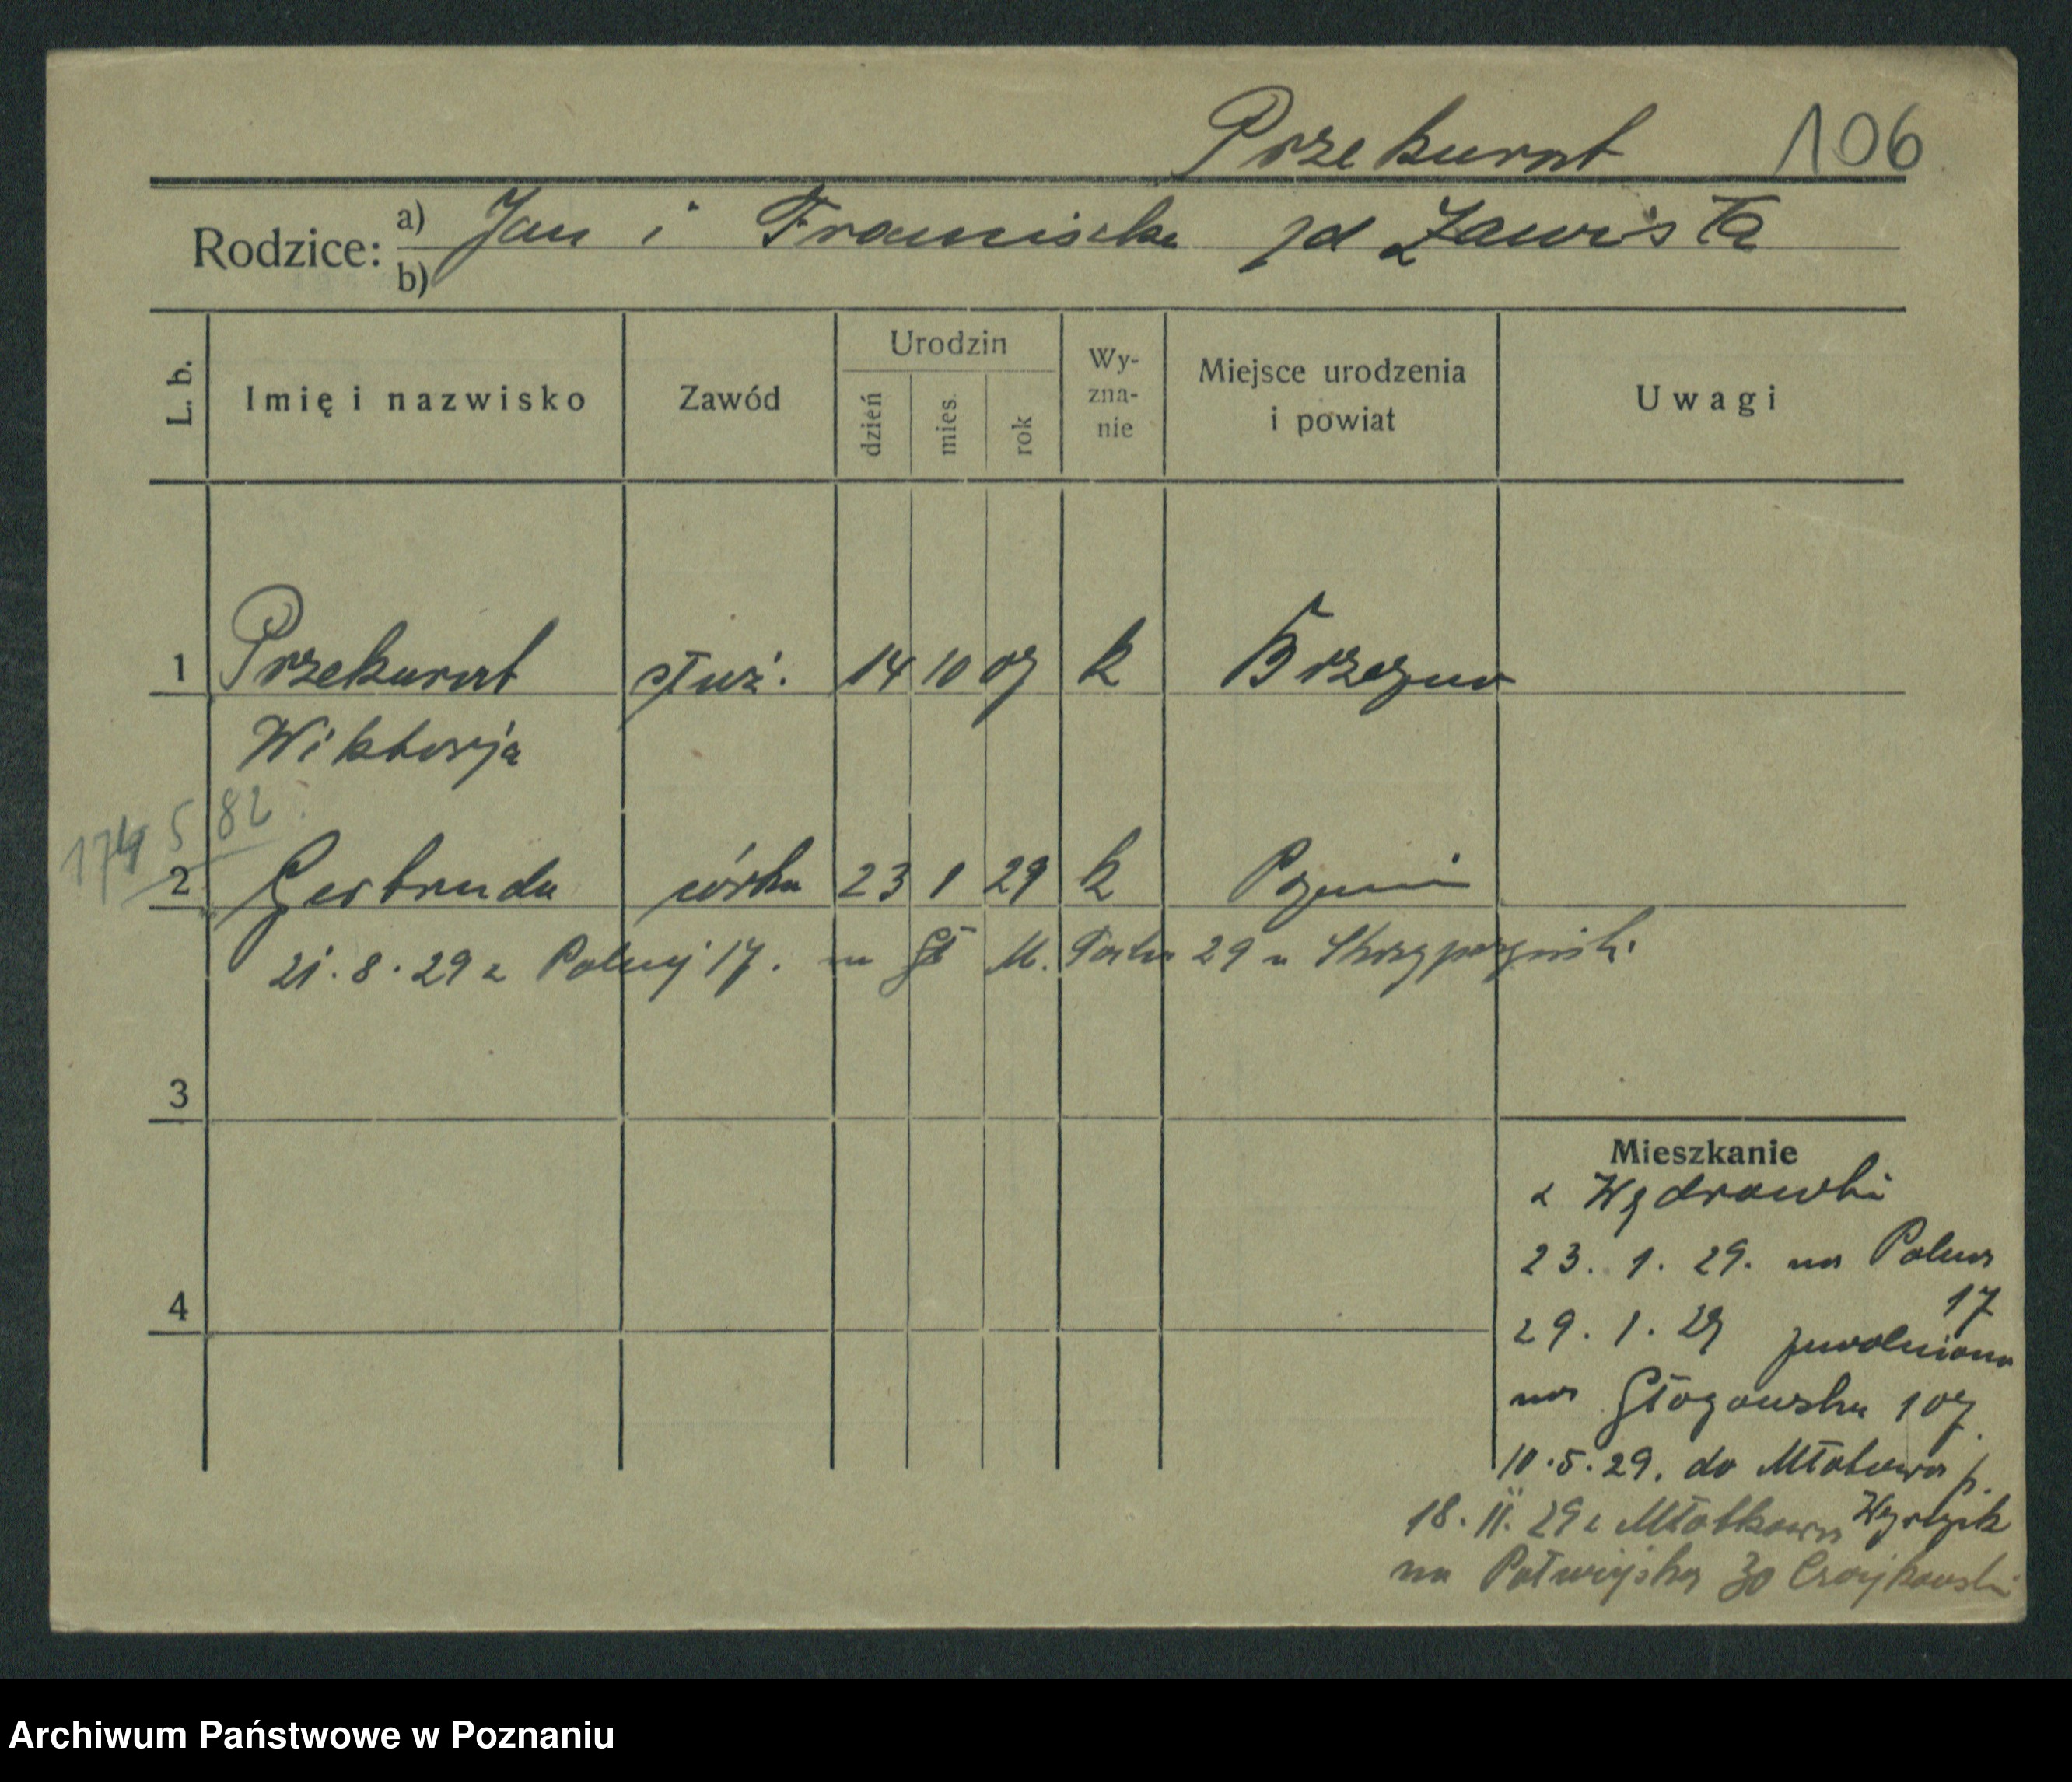 Przekurat 106
Rodzice: a) Jan i Franciszka zd Zawisła
b)
L. b. Imię i nazwisko Zawód Urodzin dzień mies. rok Wy-zna-nie Miejsce urodzenia i powiat Uwagi
1 Przekurat służ. 14 10 07 k Brzezno
Wiktorja
174 5 82
2 Gertruda córka 23 1 29 k Poznań
21. 8. 29 z Polnej 17. na M. 29 u
3
Mieszkanie
z Wędrówki
23. 1. 29. na Polna
17
4
29. 1. 29 zwolniona
na Głogowska 107
10. 5. 29. do p.
18. 11. 29 z Młotkowa Wyrzysk
na 30 Czajkowski
Archiwum Państwowe w Poznaniu